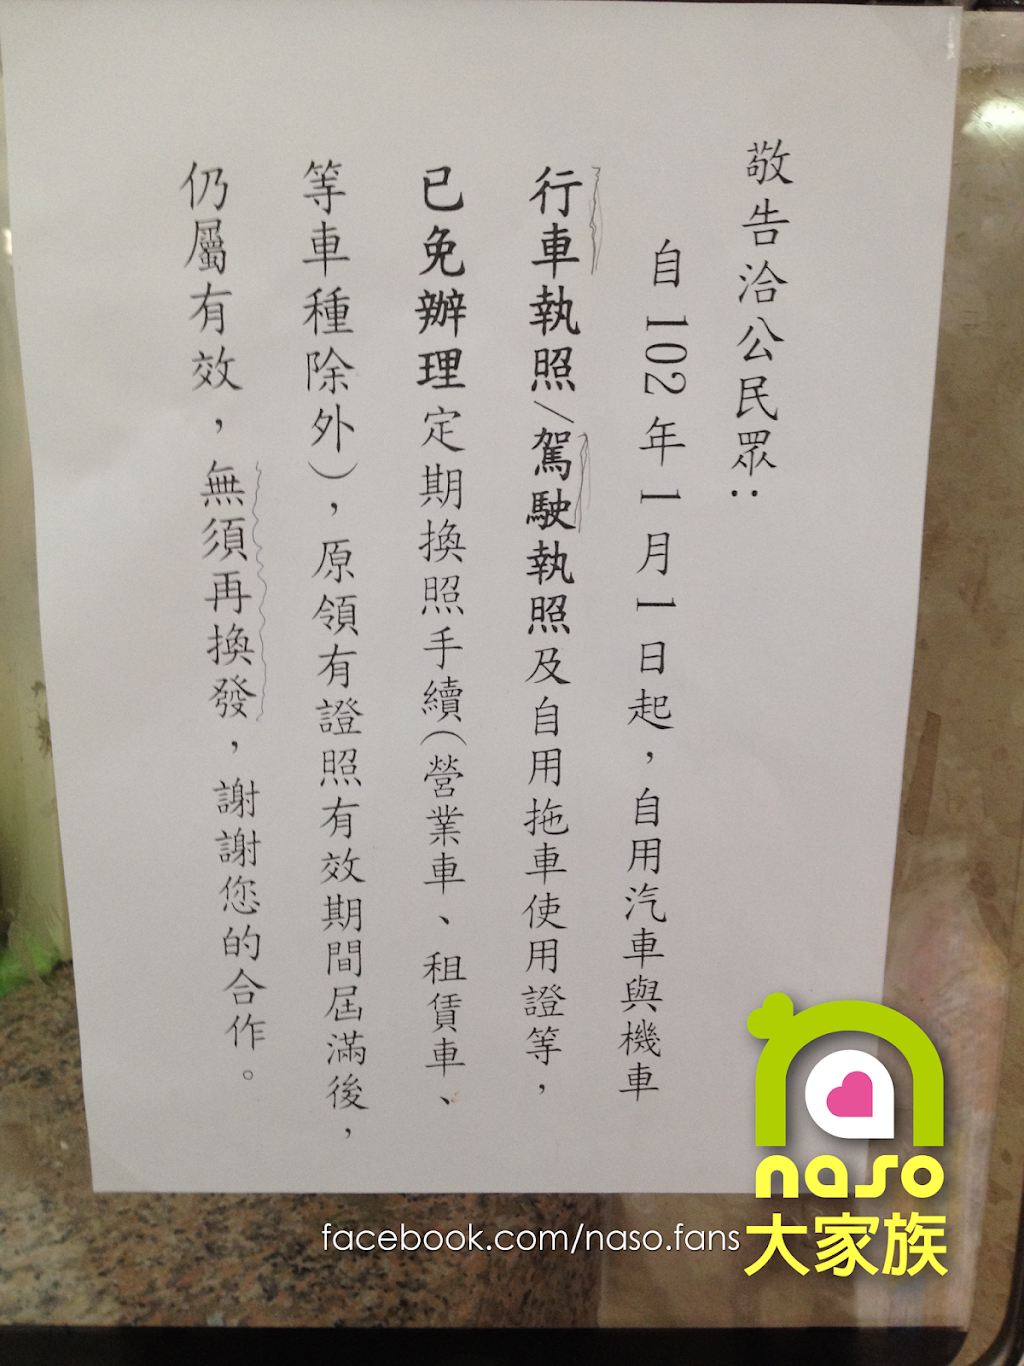 敬告洽公民眾：
自102年1月1日起，自用汽車與機車
行車執照/駕駛執照及自用拖車使用證等，
已免辦理定期換照手續(營業車、租賃車、
等車種除外)，原領有證照有效期間屆滿後，
仍屬有效，無須再換發，謝謝您的合作。
naso
facebook.com/naso.fans
大家族